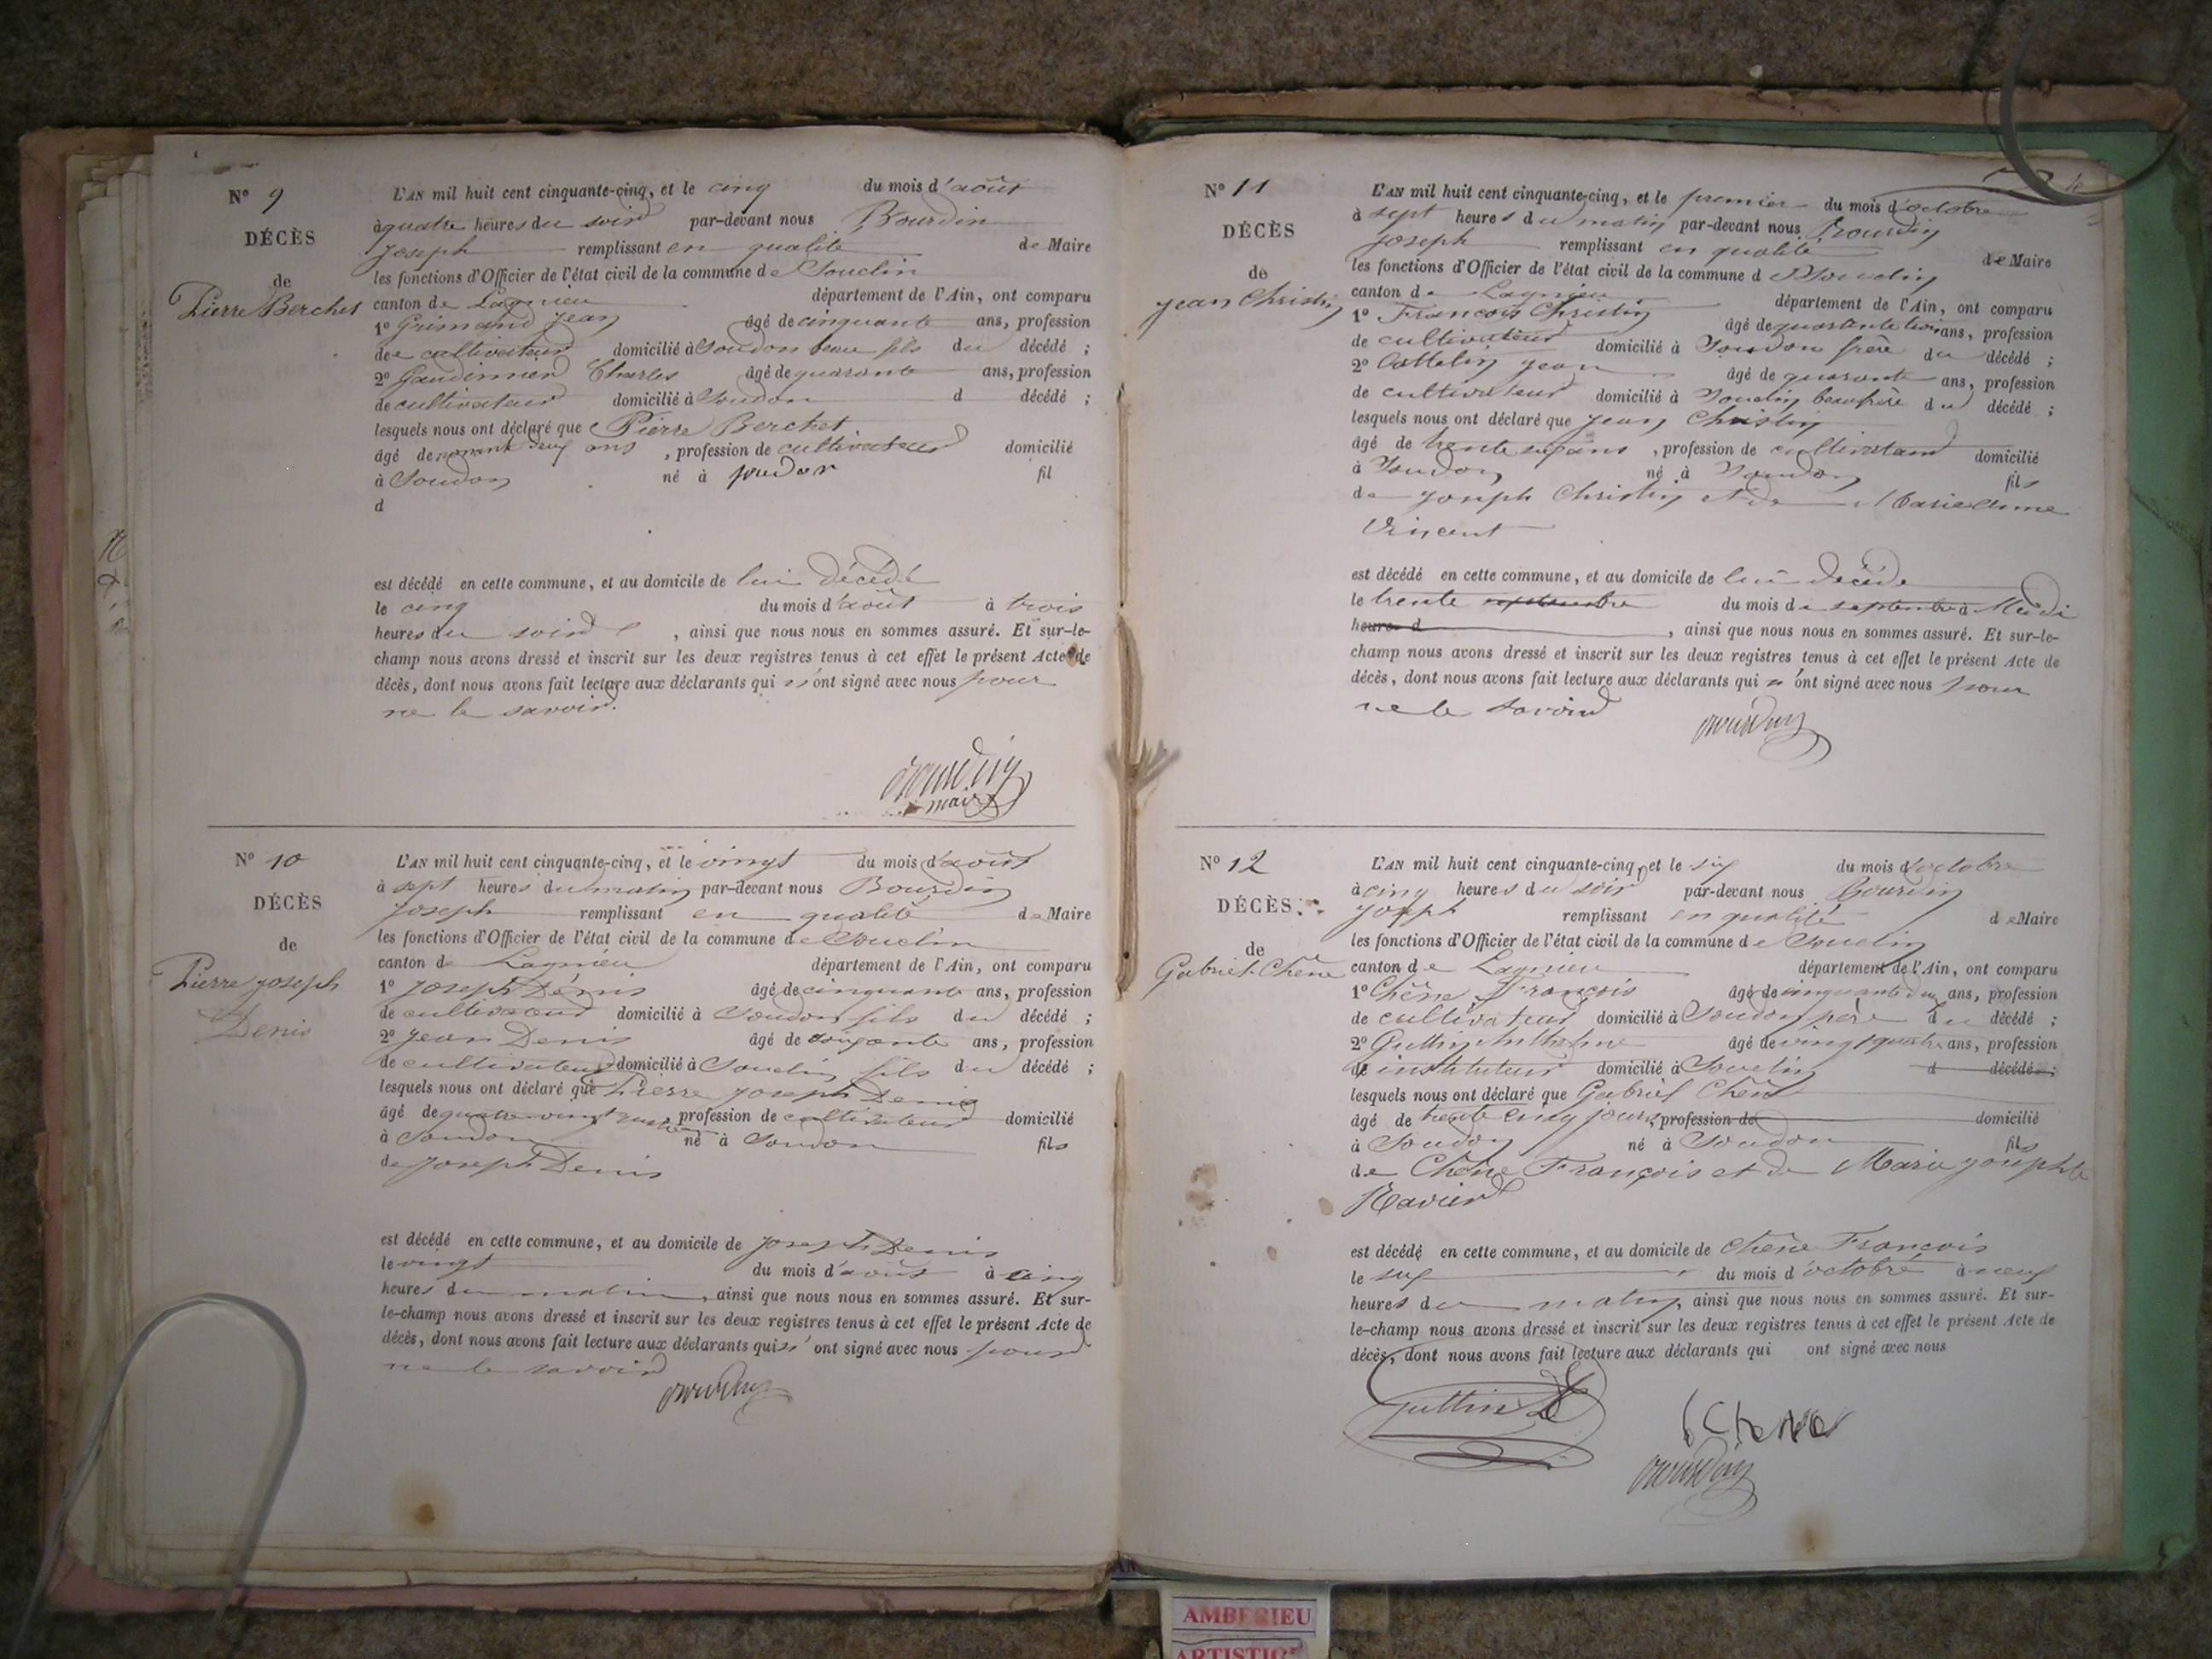 N° 9
DÉCÈS
de
Pierre Berchet
L'AN mil huit cent cinquante-cinq, et le cinq du mois d'août
à quatre heures du soir par-devant nous Bourdin
Joseph remplissant en qualité de Maire
les fonctions d'Officier de l'état civil de la commune de Souclin
canton de Lagnieu département de l'Ain, ont comparu
1° Grimand Jean âgé de cinquante ans, profession
de cultivateur domicilié à Soudon beau fils du décédé ;
2° Charles âgé de quarante ans, profession
de cultivateur domicilié à Soudon d décédé ;
lesquels nous ont déclaré que Pierre Berchet
âgé de ans, profession de cultivateur domicilié
à Soudon né à soudon fil
d
est décédé en cette commune, et au domicile de lui décédé
le cinq du mois d'août à trois
heures du soir, ainsi que nous nous en sommes assuré. Et sur-le-
champ nous avons dressé et inscrit sur les deux registres tenus à cet effet le présent Acte de
décès, dont nous avons fait lecture aux déclarants qui n'ont signé avec nous pour
ne le savoir.
Bourdin
maire
N° 10
DÉCÈS
de
Pierre joseph
Denis
L'AN mil huit cent cinquante-cinq, et le vingt du mois d'août
à sept heures du matin par-devant nous Bourdin
Joseph remplissant en qualité de Maire
les fonctions d'Officier de l'état civil de la commune de Souclin
canton de Lagnieu département de l'Ain, ont comparu
1° Joseph Denis âgé de cinquante ans, profession
de cultivateur domicilié à Soudon fils du décédé ;
2° Jean Denis âgé de soixante ans, profession
de cultivateur domicilié à Souclin fils du décédé ;
lesquels nous ont déclaré que Pierre joseph Denis
âgé de quatre vingt profession de cultivateur domicilié
à Soudon né à Soudon fils
de joseph Denis
est décédé en cette commune, et au domicile de joseph Denis
le vingt du mois d'août à cinq
heures du matin, ainsi que nous nous en sommes assuré. Et sur-
le-champ nous avons dressé et inscrit sur les deux registres tenus à cet effet le présent Acte de
décès, dont nous avons fait lecture aux déclarants qui n'ont signé avec nous pour
ne le savoir
Bourdin
N° 11
DÉCÈS
de
Jean Christin
L'AN mil huit cent cinquante-cinq, et le premier du mois d'octobre
à sept heures du matin par-devant nous Bourdin
Joseph remplissant en qualité de Maire
les fonctions d'Officier de l'état civil de la commune de Souclin
canton de Lagnieu département de l'Ain, ont comparu
1° François Christin âgé de quarante trois ans, profession
de cultivateur domicilié à Soudon frère du décédé ;
2° jean âgé de quarante ans, profession
de cultivateur domicilié à Souclin beaufrère du décédé ;
lesquels nous ont déclaré que Jean Christin
âgé de trente ans, profession de cultivateur domicilié
à Soudon né à Soudon fils
de joseph Christin et de Marie Anne
Vincent
est décédé en cette commune, et au domicile de lui décédé
le trente septembre du mois de septembre à Midi
heures d, ainsi que nous nous en sommes assuré. Et sur-le-
champ nous avons dressé et inscrit sur les deux registres tenus à cet effet le présent Acte de
décès, dont nous avons fait lecture aux déclarants qui n'ont signé avec nous pour
ne le savoir
Bourdin
N° 12
DÉCÈS
de
Gabriel Chêne
L'AN mil huit cent cinquante-cinq, et le six du mois d'octobre
à cinq heures du soir par-devant nous Bourdin
joseph remplissant en qualité de Maire
les fonctions d'Officier de l'état civil de la commune de Souclin
canton de Lagnieu département de l'Ain, ont comparu
1° Chêne François âgé de cinquante deux ans, profession
de cultivateur domicilié à Soudon père du décédé ;
2° Guttin Anthelme âgé de vingt quatre ans, profession
d'instituteur domicilié à Souclin d décédé ;
lesquels nous ont déclaré que Gabriel Chêne
âgé de trente cinq jours, profession de domicilié
à Soudon né à Soudon fils
de Chêne François et de Marie josephte
Ravier
est décédé en cette commune, et au domicile de Chêne François
le six du mois d'octobre à neuf
heures du matin, ainsi que nous nous en sommes assuré. Et sur-
le-champ nous avons dressé et inscrit sur les deux registres tenus à cet effet le présent Acte de
décès, dont nous avons fait lecture aux déclarants qui ont signé avec nous
Guttin
Chene
Bourdin
AMBERIEU
ARTISTIC